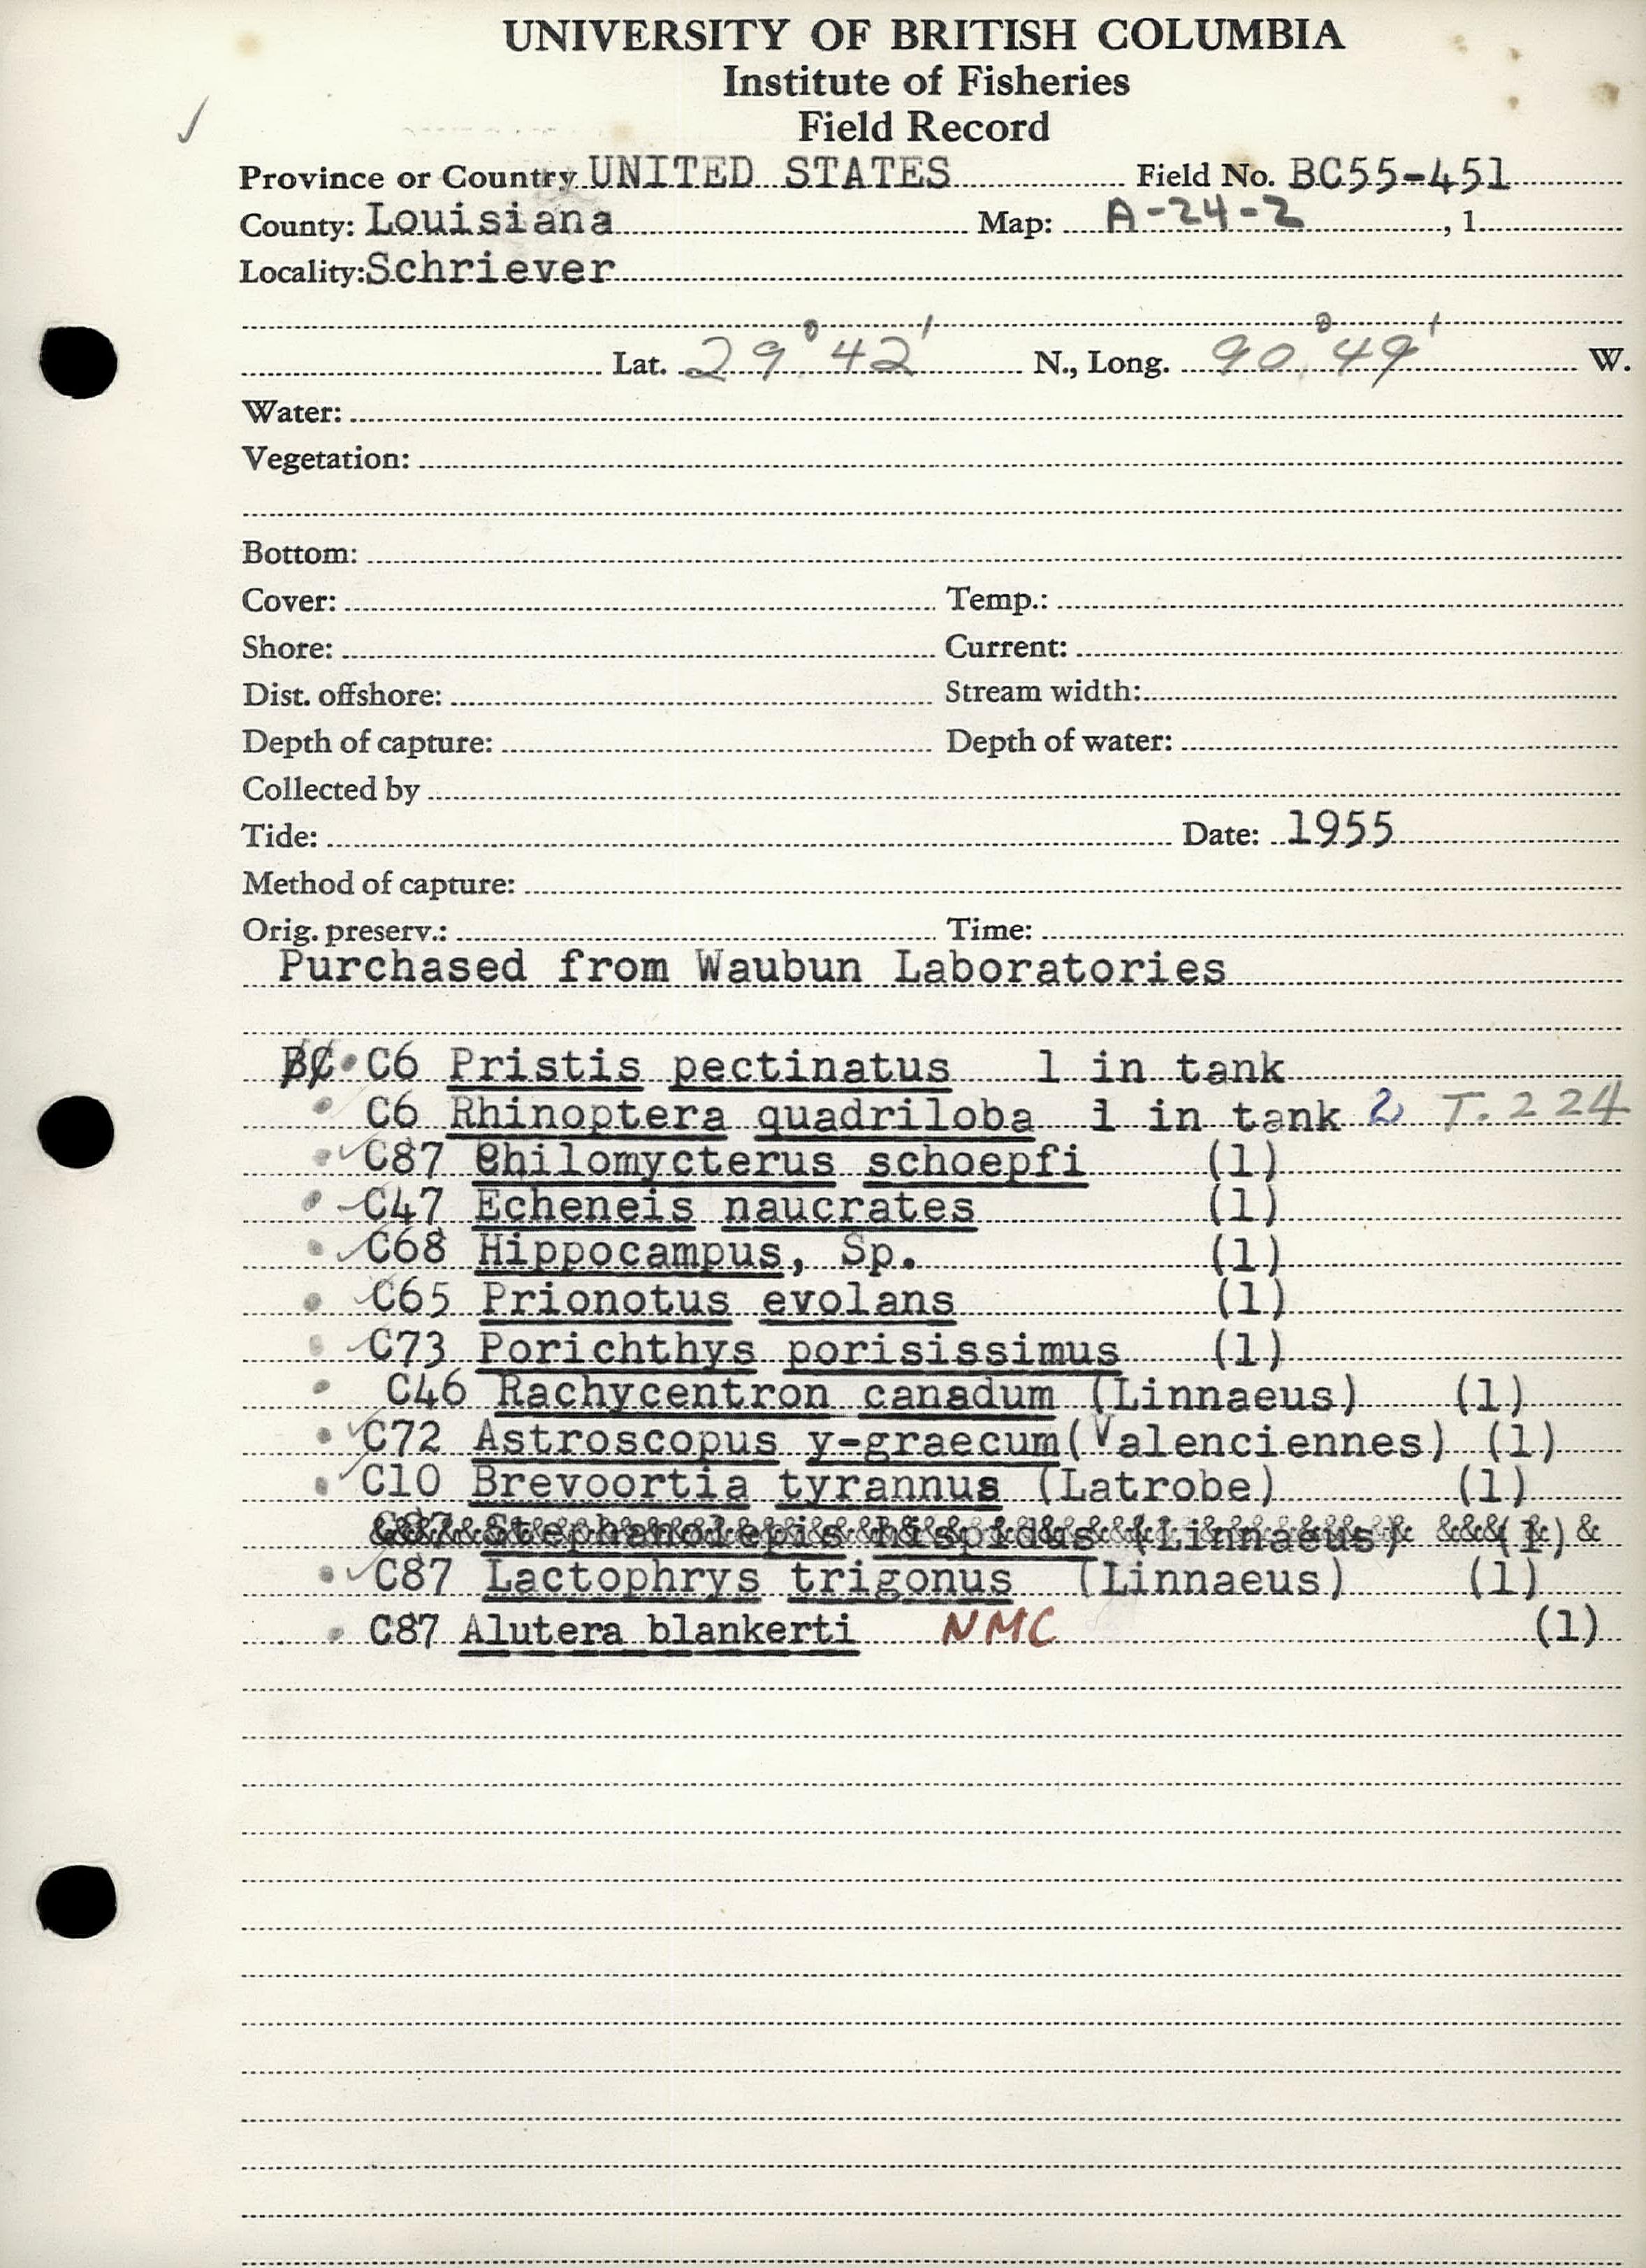 UNIVERSITY OF BRITISH COLUMBIA
Institute of Fisheries
Field Record
Province or Country UNITED STATES Field No. BC55-451
County: Louisiana Map: A-24-2 , 1
Locality: Schriever
Lat. 29° 42' N., Long. 90° 49' W.
Water:
Vegetation:
Bottom:
Cover: Temp.:
Shore: Current:
Dist. offshore: Stream width:
Depth of capture: Depth of water:
Collected by
Tide: Date: 1955
Method of capture:
Orig. preserv.: Time:
Purchased from Waubun Laboratories
BC C6 Pristis pectinatus 1 in tank
C6 Rhinoptera quadriloba 1 in tank 2 T. 224
C87 Chilomycterus schoepfi (1)
C47 Echeneis naucrates (1)
C68 Hippocampus, Sp. (1)
C65 Prionotus evolans (1)
C73 Porichthys porisissimus (1)
C46 Rachycentron canadum (Linnaeus) (1)
C72 Astroscopus y-graecum(Valenciennes) (1)
C10 Brevoortia tyrannus (Latrobe) (1)
C87 Stephanolepis hispidus (Linnaeus) (1)
C87 Lactophrys trigonus (Linnaeus) (1)
C87 Alutera blankerti NMC (1)